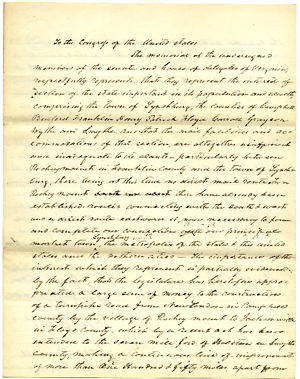 To the Congress of the United States
The memorial of the undersigned
members of the senate and house of delegates of Virginia,
respectfully represents, that they represent the interest of
section of the state important in its population and wealth
comprising the town of Lynchburg, the counties of Campbell
Bedford Franklin Henry Patrick Floyd Carroll Grayson
Wythe and Smythe. And that the mail facilities and ac-
commodations of that section, are altogether insufficient
and inadequate to its wants – particularly between
Rocky mount in Franklin County and the town of Lynch-
burg, there being at this time no direct mail route from
Rocky mount
established routes connecting with the south & west
and a direct route eastward is now necessary to form
and complete our connection with our principal
market town, the metropolis of the state & the united
states and the northern cities – The importance of the
interest which they represent is partially evidenced
by the fact, that the legislature has heretofore appro-
priated a large sum of money to the construction
of a turnpike road from New London in Campbell
county by the village of Rocky mount to Jacksonville
in Floyd County, which by a recent act has been
extended to the seven mile ford of Holstein in Smythe
county, making a continuous line of improvement
of more than one Hundred & fifty miles apart from